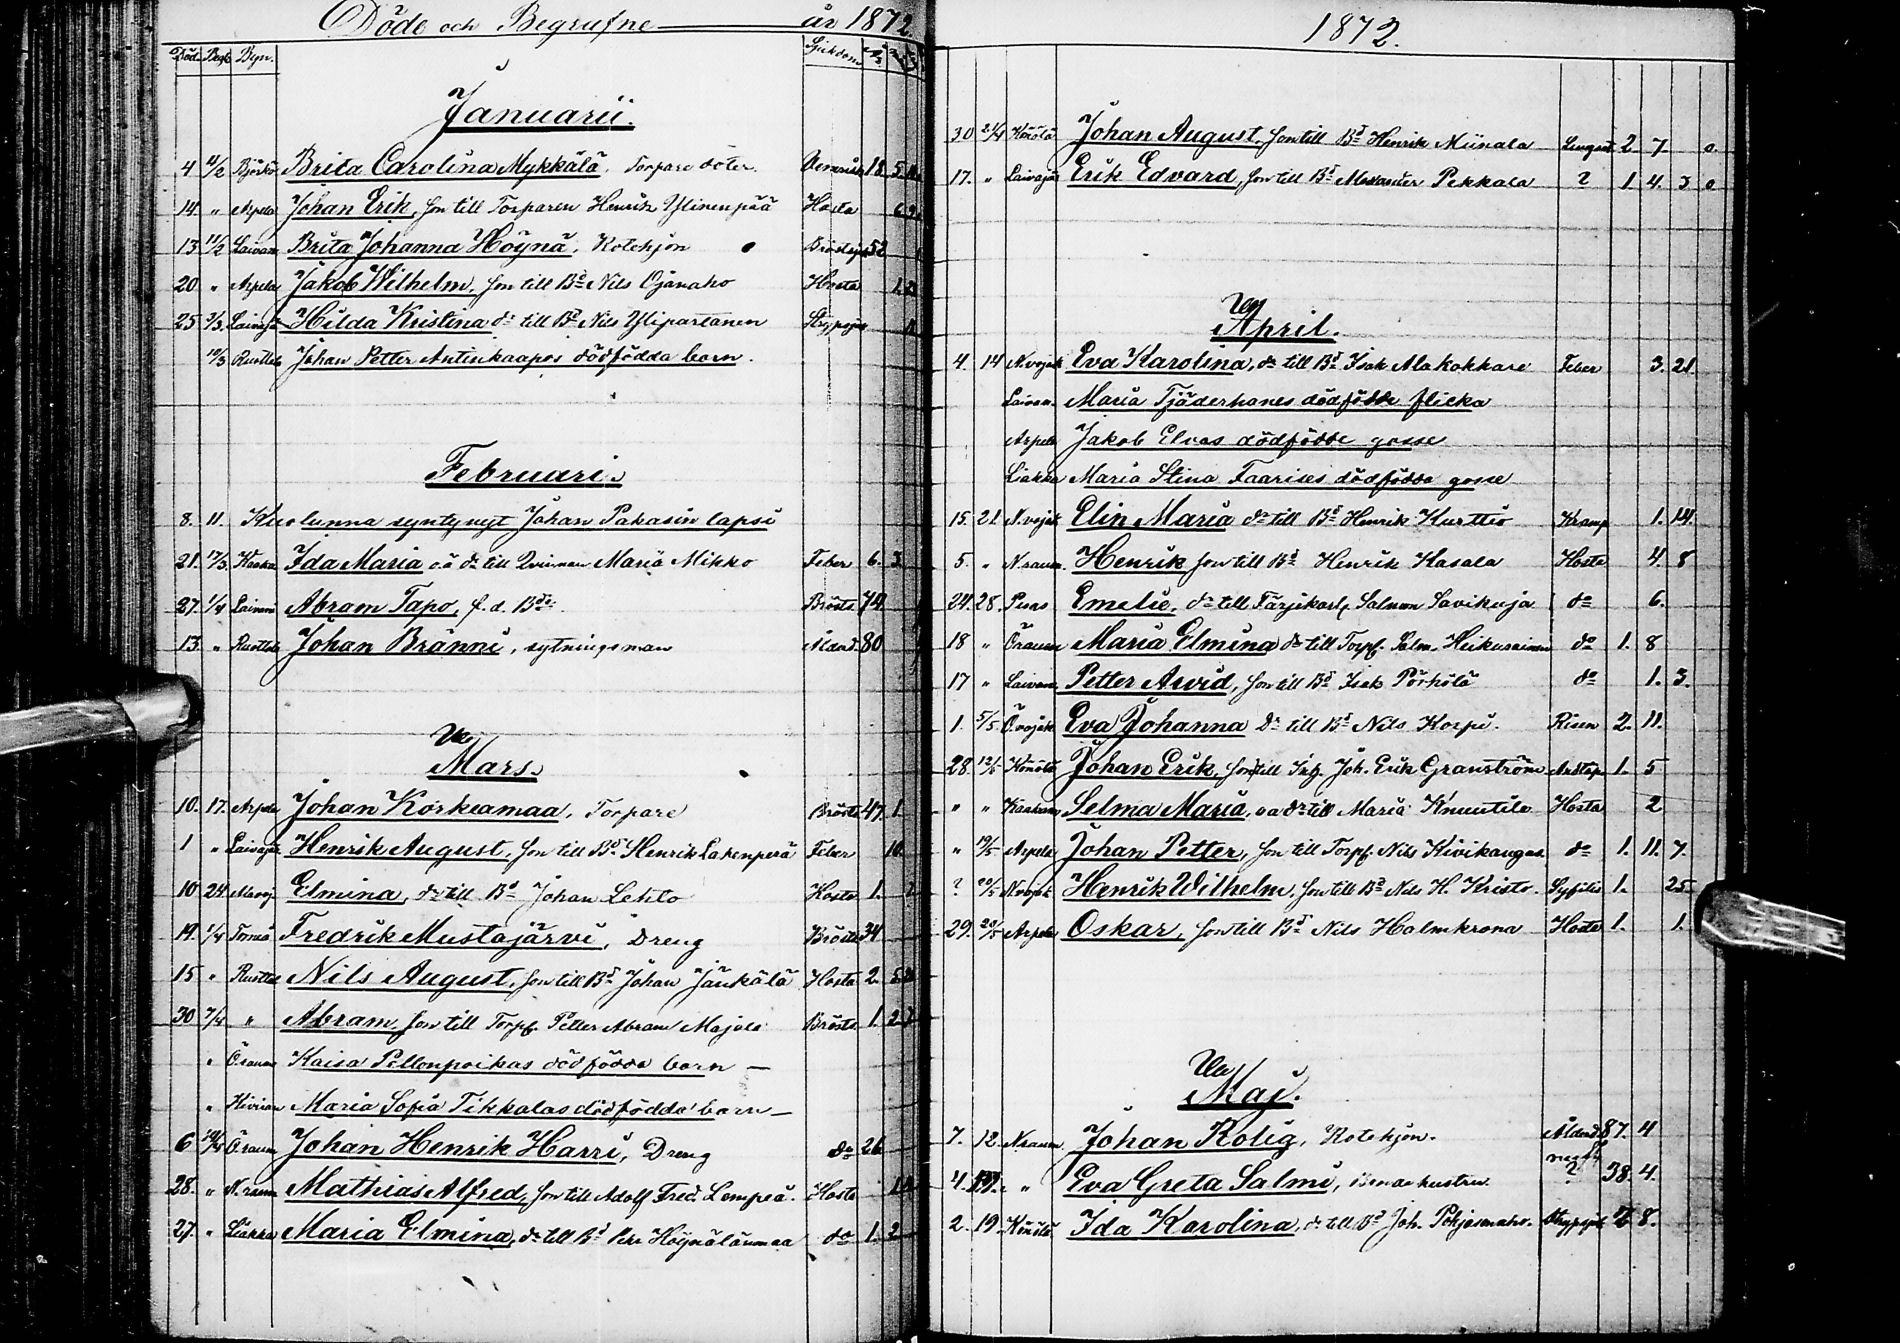 Döde och Begrafne år 1872.
Död. Begr. Byn. Sjukdom
Januarii.
4 Björkö Brita Carolina Mykkälä, Torpare doter. 18 5
14. " Arpela Johan Erik, son till Torparen Henrik Ylinenpää Hosta 6
13 11/2 Laivan Brita Johanna Höynä, Rotehjon 52
20 " Arpela Jakob Wilhelm, son till Bd Nils Ojanaho Hosta 1.
25 Laivajä Hilda Kristina dr till Bd Nils Ylipartanen
10/3 Ruottala Johan Petter Antinkaapos dödfödda barn.
Februari.
8. 11. Kuolunna syntynyt Johan Pakasin lapsi
21. 17/3 Kaaka Ida Maria o.ä dr till Qvinnan Maria Mikko Feber 6. 3
27. 1/4 Laivan Abram Tapo, f.d. Bde Brösts 74
13 " Ruottala Johan Bränni, sytningsman Ålderd 80
Mars.
10. 17. Arpela Johan Korkeamaa, Torpare Brösts 47 1.
1 " Laivajär Henrik August, son till Bd Henrik Lakenperä Feber 10.
10 24 Elmina, dr till Bd Johan Lehto Hosta 1.
19. 1/4 Torneå Fredrik Mustajärvi, Dreng Brösts 34
15 " Ruottal Nils August, son till Bd Johan Jänkälä Hosta 2. 5
30 7/4 " Abram, son till Torpf. Petter Abram Majala Brösts 1 2
" Ö.raum Kaisa Pellonpoikas dödfödda barn —
" Kiviran Maria Sofia Tikkalas dödfödda barn —
6 Ö.raum Johan Henrik Harri, Dreng do 26
28. " N.raum Mathias Alfred, son till Adolf Fred. Lempeä. Hosta
27. " Liakka Maria Elmina, dr till Bd Pehr Höynälänmaa do 1. 2
1872.
30 21/4 Könölä Johan August, son till Bd Henrik Miinala 2 7 0
17. " Laivajär Erik Edvard, son till Bd Alexander Pekkala ? 1 4. 3 0
April.
4. 14 N.vojak Eva Karolina, dr till Bd Isak Alakokkare Feber 3. 21.
Laivan. Maria Tjäderhanes dödfödde flicka
Arpela Jakob Elvas dödfödde gosse
Liakka Maria Stina Faarises dödfödda gosse
15. 21. N.vojak Elin Maria dr till Bd Henrik Kurttio Kramp 1. 14.
5. " N.raum. Henrik son till Bd Henrik Hasala Hosta 4. 8
24. 28 Puas Emelie, dr till Färjekarl Salmon Savikuja do 6.
18 " Ö.raum Maria Elmina dr till Torpf. Salm. Heikurainen do 1. 8
17 " Laivan Petter Arvid, son till Bd Isak Pörhölä do 1. 3.
1. 5/5 Ö.vojak Eva Johanna dr till Bd Nils Korpi. Risen 2. 11.
28. 12/5 Könölä Johan Erik, son till Joh. Erik Granström 1. 5
" " Kaakam Selma Maria, oä dr till Maria Knuutila Hosta 2
" 19/5 Arpela Johan Petter, son till Torpf. Nils Kivikangas do 1. 11. 7.
? N.vojak Henrik Wilhelm, son till Bd Nils H. Kristo. Syfilis 1. 25
29. Arpela Oskar, son till Bd Nils Holmkrona Hosta 1. 1.
Maj.
7. 12. N.raum Johan Rolig, Rotehjon. Ålderd 87. 4
4. 19. " Eva Greta Salmi, ? 38. 4.
2. 19. Könölä Ida Karolina, dr till Bd Joh. Pohjasenaho. 8.